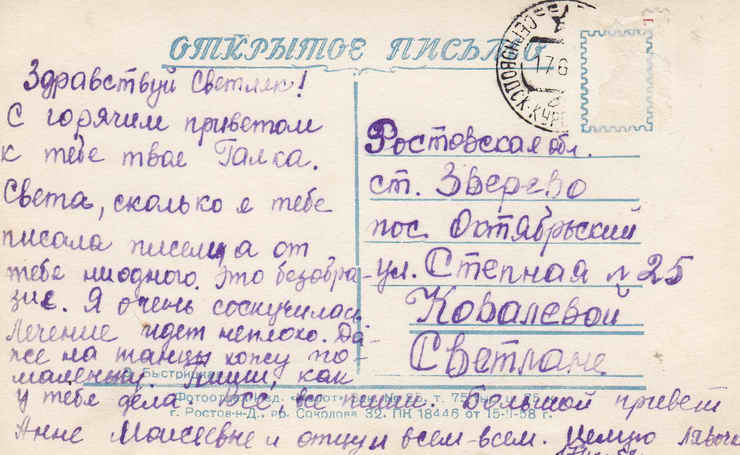 ОТКРЫТОЕ ПИСЬМО
Здравствуй Светлек!
С горячим приветом
к тебе твое Галка.
Света, сколько я тебе
писала писем, а от
тебе ниодного. Это безобра-
зие. Я очень соскучилась
Лечение идет неплохо. Да-
же на танцы хожу по-
маленьку. Пиши, как
у тебе дела. Все, все пиши. Большой привет
Анне Моисеевне и отцу и всем-всем. Целую
Ростовская обл.
ст. Зверево
пос. Октябрьский
ул. Степная № 25
Ковалевой
Светлане
г. Ростов-н-Д., пр. Соколова 32. ПК 18446 от 15-1-58 г.